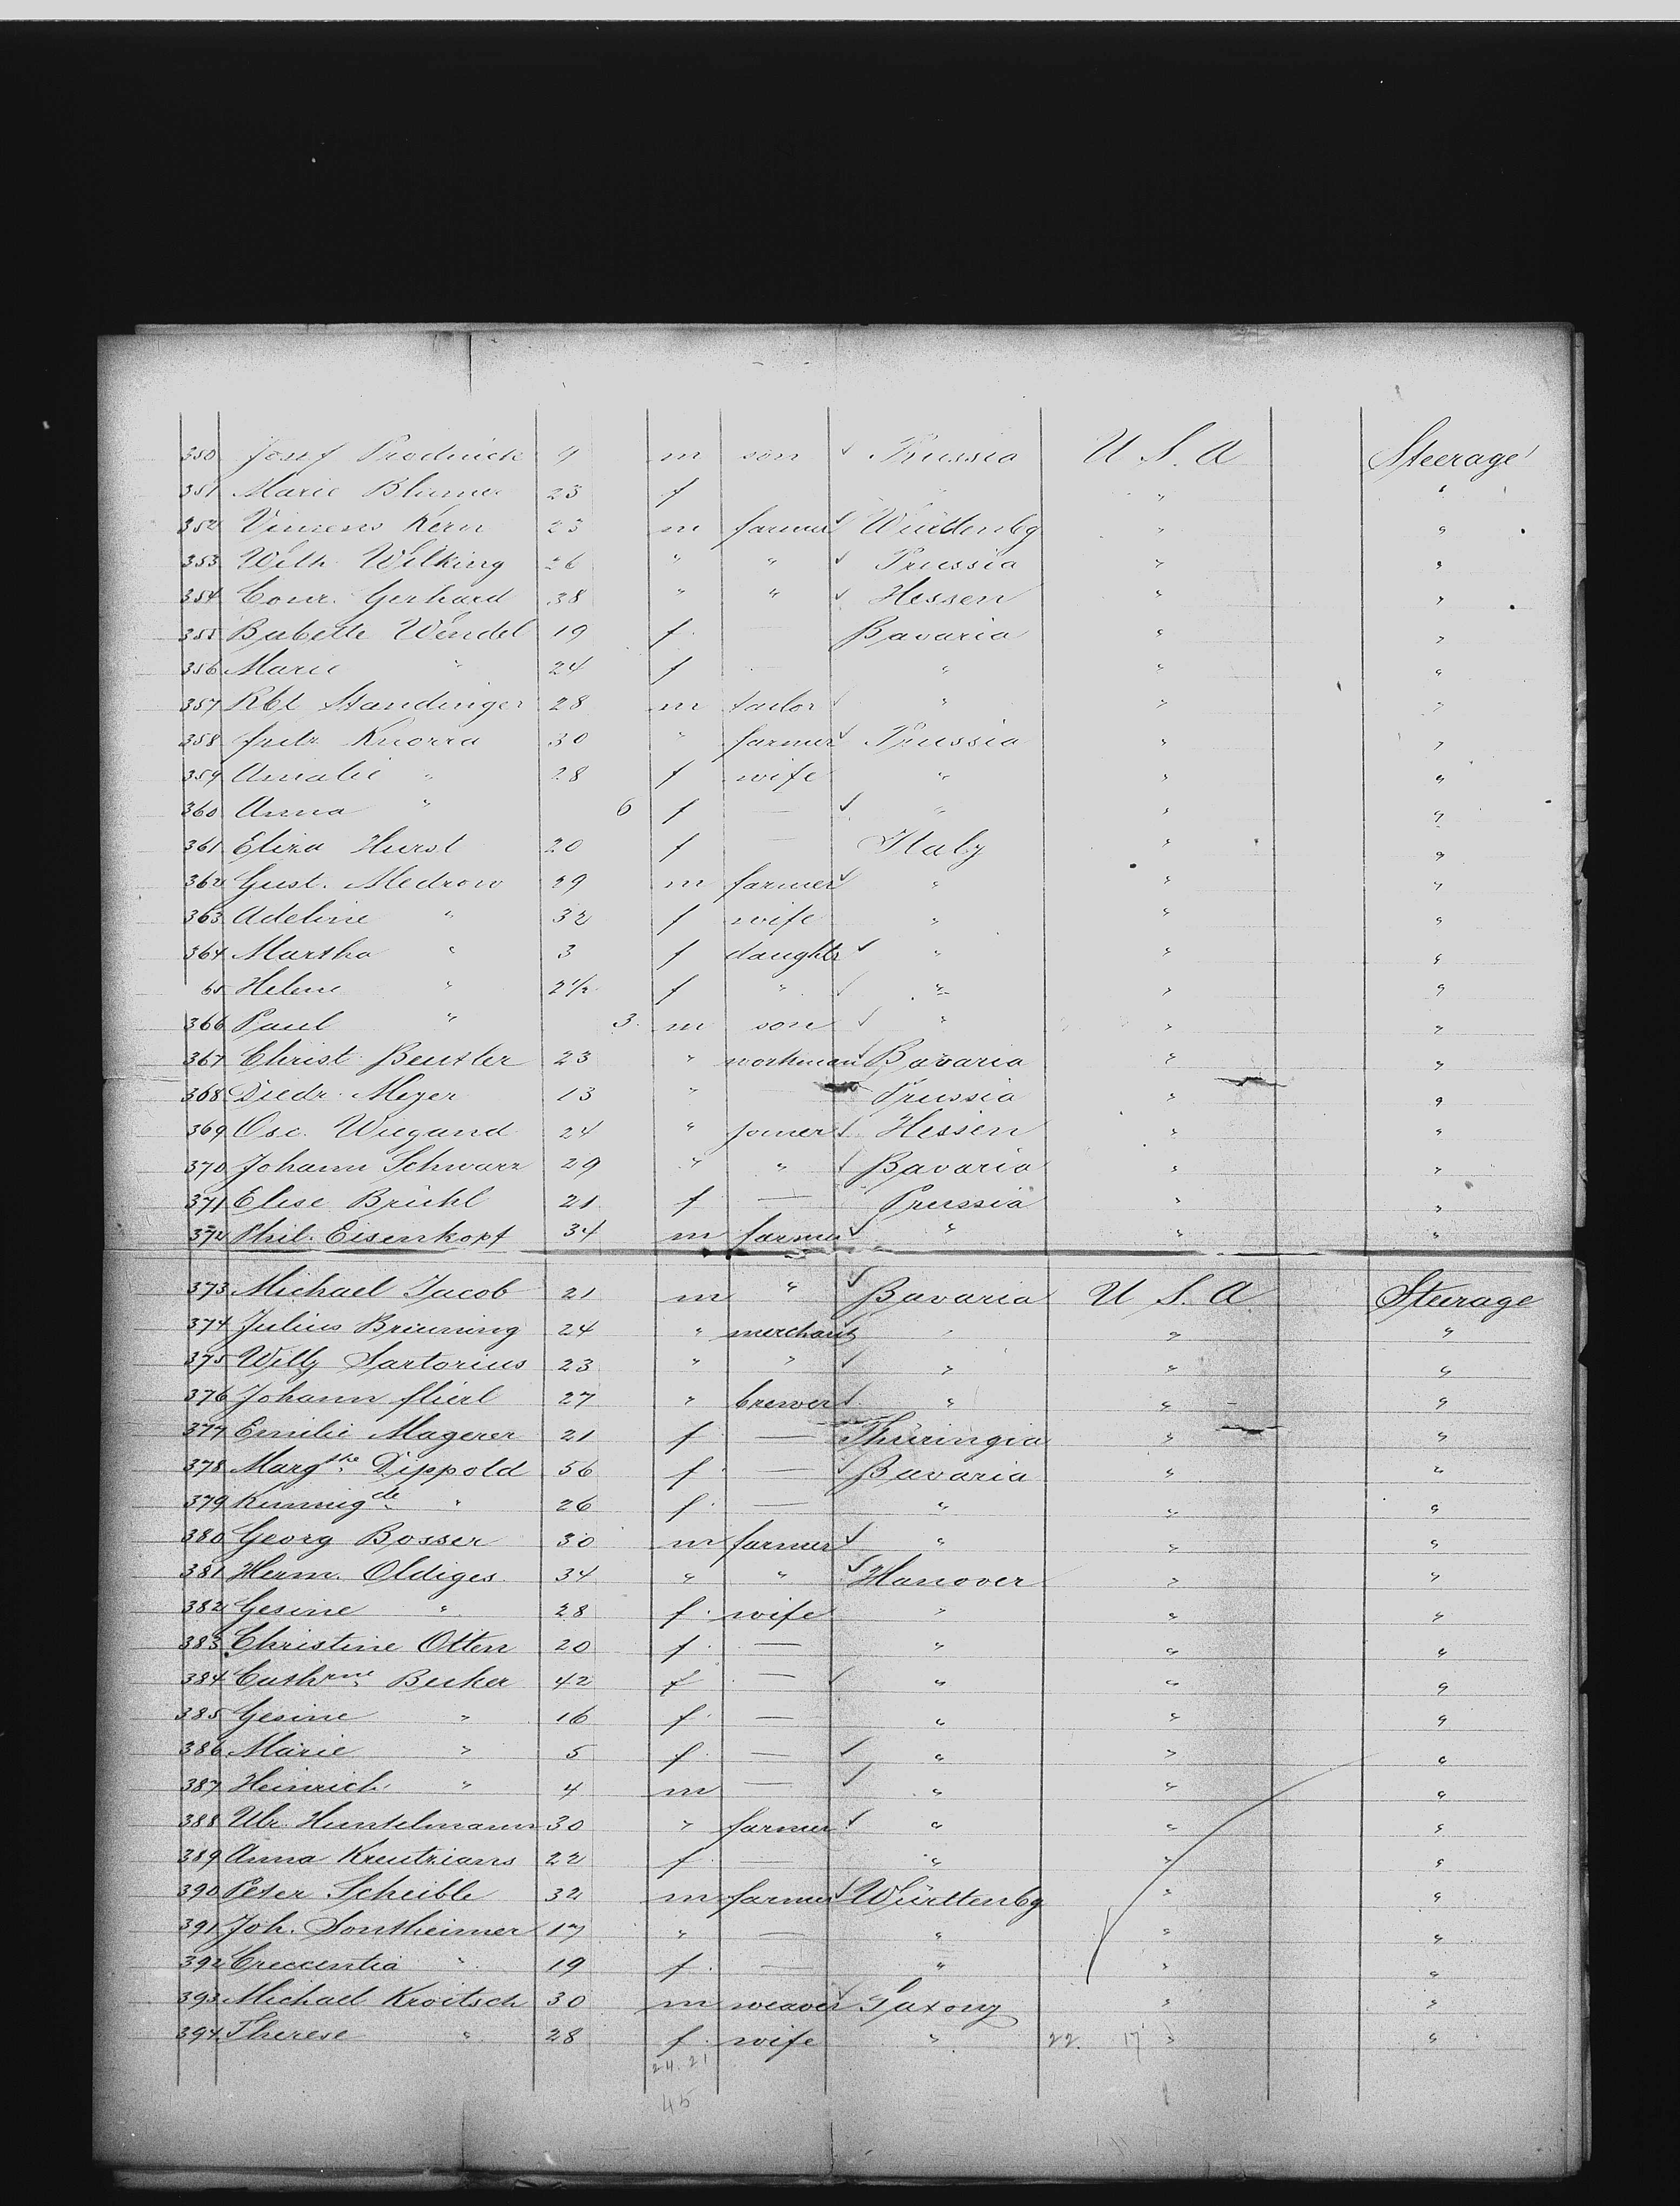 350 Josef Prodnick 9 m son ✓ Prussia U S. A Steerage
351 Marie Blume 23 f " "
352 Vincens Kern 23 m farmer ✓ Würtenbg " "
353 Wilh. Wilking 26 " " ✓ Prussia " "
354 Conr. Gerhard 38 " " ✓ Hessen " "
355 Babette Wendel 19 f. — Bavaria " "
356 Marie " 24 f — " " "
357 Rbt Standinger 28 m tailor ✓ " " "
358 Fritz Knorra 30 " farmer ✓ Prussia " "
359 Amalie " 28 f wife " " "
360 Anna " 6 f — ✓ " " "
361 Eliza Hurst 20 f — Italy " "
362 Gust. Medrow 29 m farmer ✓ " " "
363 Adeline " 32 f wife " " "
364 Martha " 3 f daughtr ✓ " " "
65 Helene " 2 1/2 f " ✓ " " "
366 Paul " 3. m son ✓ " " "
367 Christ. Beutler 23 " workman ✓ Bavaria " "
368 Diedr. Meyer 13 " Prussia " "
369 Osc. Wiegand 24 " joiner ✓ Hessen " "
370 Johann Schwarz 29 " " ✓ Bavaria " "
371 Elise Brühl 21 f — Prussia " "
372 Phil. Eisenkopf 34 m farmer ✓ " " "
373 Michael Jacob 21 m " ✓ Bavaria U S. A. Steerage
374 Julius Breuning 24 " merchant ✓ " " "
375 Willy Sartorius 23 " " ✓ " " "
376 Johann Flierl 27 " brewer ✓ " " "
377 Emilie Magerer 21 f — Thüringia " "
378 Margthe Dippold 56 f — ✓ Bavaria " "
379 Kunnigde " 26 f. — " " "
380 Georg Bosser 30 m farmer ✓ " " "
381 Herm. Oldiges 34 " " ✓ Hanover " "
382 Gesine " 28 f. wife " " "
383 Christine Otten 20 f. — " " "
384 Cathrine Becker 42 f — ✓ " " "
385 Gesine " 16 f. — " " "
386 Marie " 5 f. — ✓ " " "
387 Heinrich " 4 m — ✓ " " "
388 Ulr. Huntelmann 30 " farmer ✓ " " "
389 Anna Kreutzians 22 f. — " " "
390 Peter Scheible 32 m farmer ✓ Würtenbg " "
391 Joh. Sontheimer 17 " — " " "
392 Creccentia " 19 f. — " " "
393 Michael Kroitsch 30 m weaver ✓ Saxony " "
394 Therese " 28 f. wife " 22. 17 " "
24. 21
45